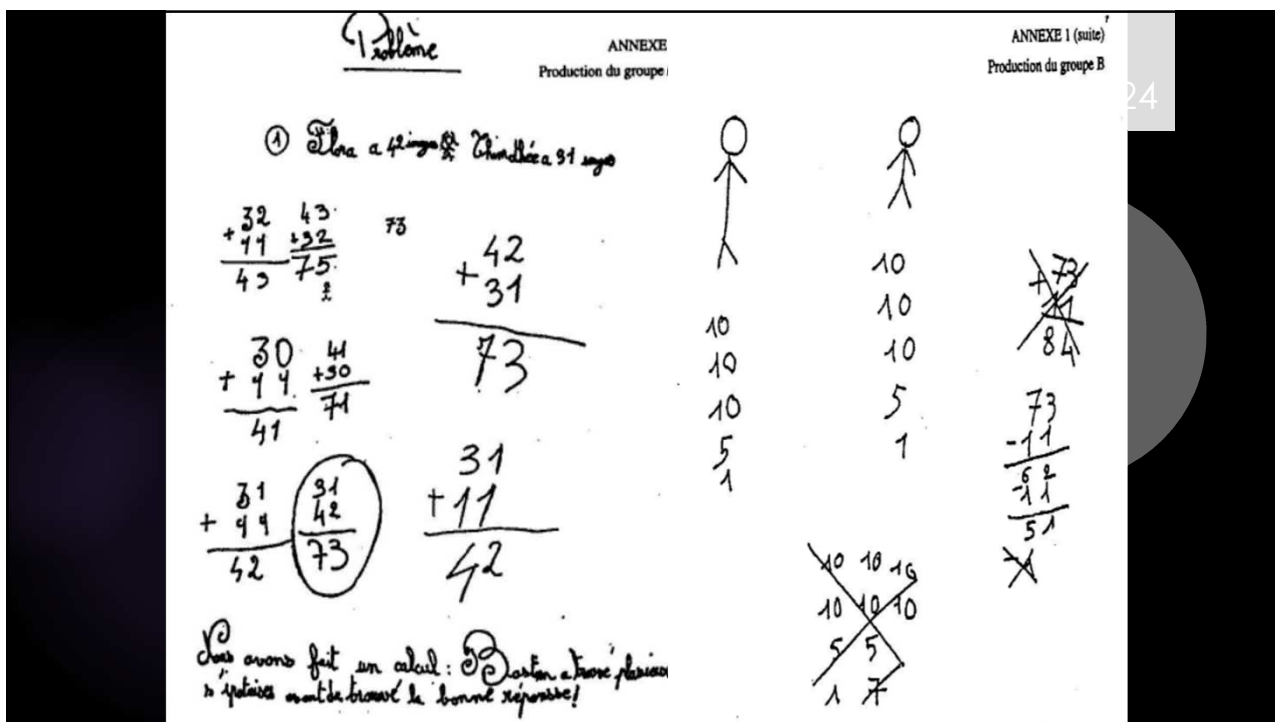 Problème
ANNEXE
Production du groupe
① Flora a 42 images Thimothée a 31 images
32
+ 11
43
43
+32
75
2
73
42
+ 31
73
30
+ 11
41
41
+30
71
31
+ 11
42
31
42
73
31
+11
42
Nous avons fait un calcul : Bastien a trouvé plusieurs
avant de trouvé la bonne réponsse!
ANNEXE 1 (suite)
Production du groupe B
24
10
10
10
5
1
10
10
10
5
1
73
+ 11
84
73
-11
6 2
-1 1
51
10 10 10
10 10 10
5 5
1 7